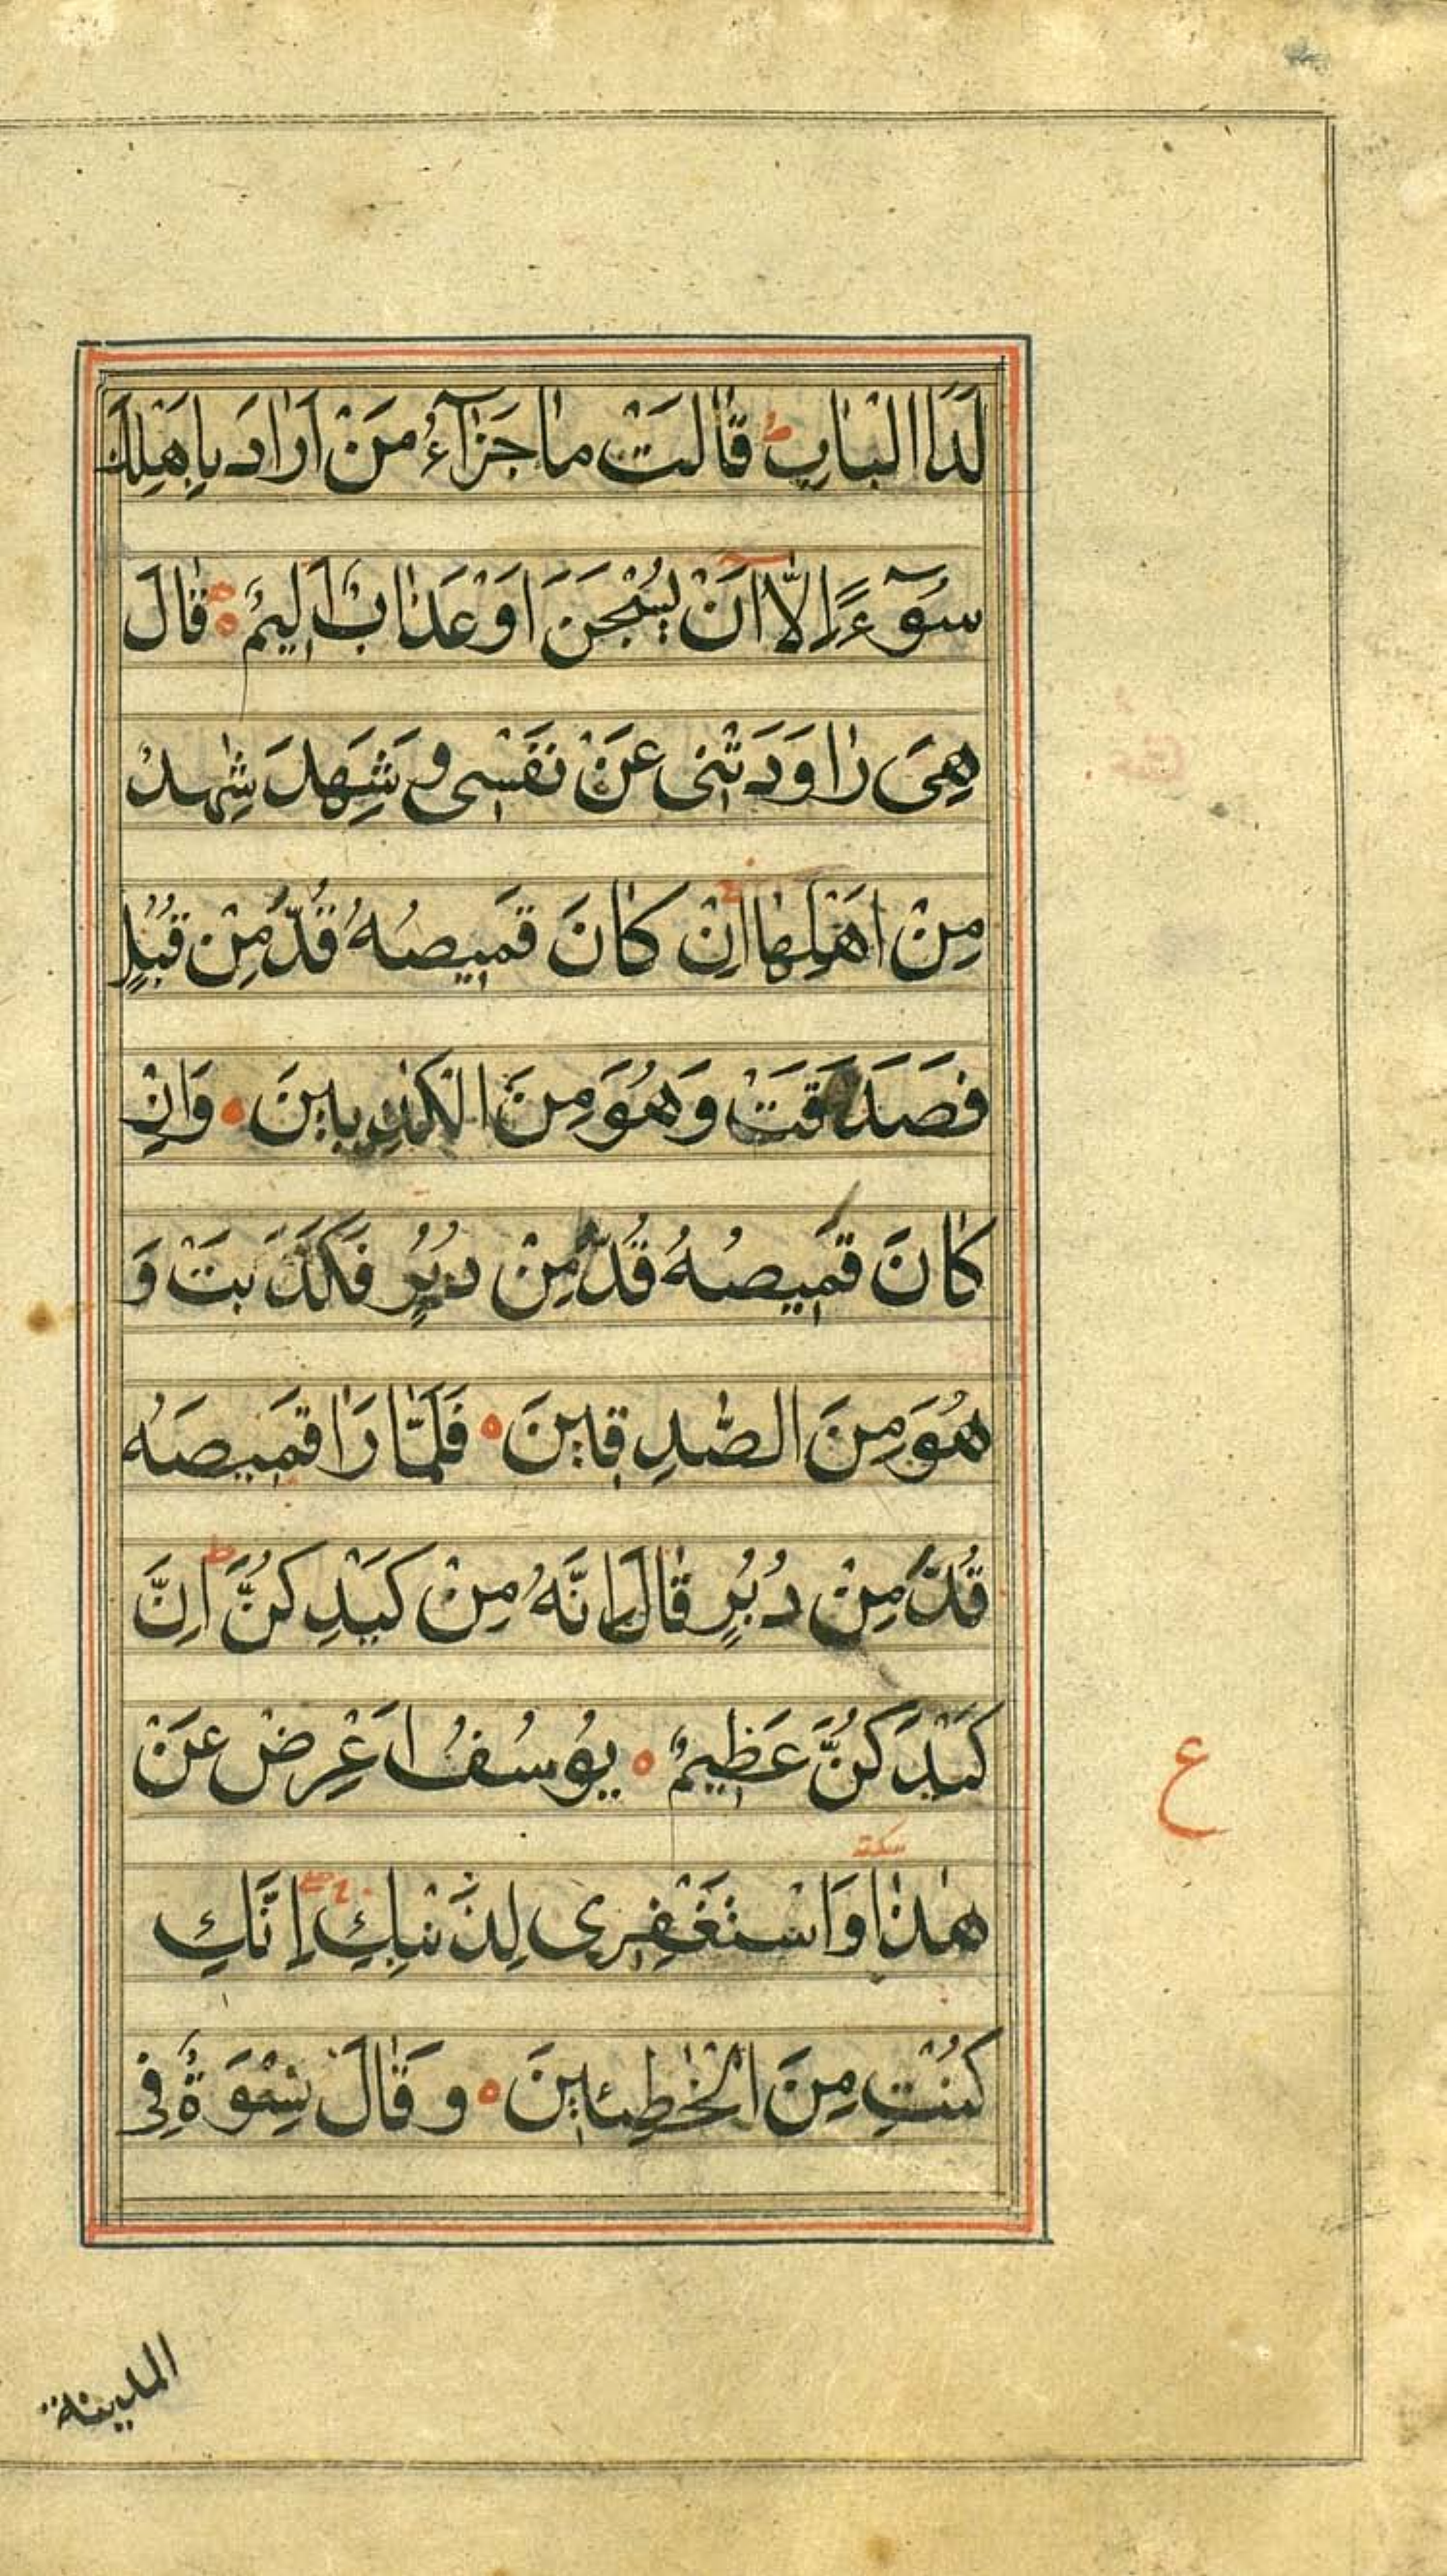 لَدَا الْبَابِ ط قَالَتْ مَا جَزَآءُ مَنْ اَرَادَ بِاَهْلِكَ
سُوٓءًا اِلَّا اَنْ يُسْجَنَ اَوْ عَذَابٌ اَلِيْمٌ ۝ قَالَ
هِيَ رَاوَدَتْنِى عَنْ نَفْسِى وَ شَهِدَ شَهِدٌ
مِنْ اَهْلِهَا اِنْ كَانَ قَمِيصُهُ قُدَّ مِنْ قُبُلٍ
فَصَدَقَتْ وَهُوَ مِنَ الْكٰذِبِينَ ۝ وَاِنْ
كَانَ قَمِيصُهُ قُدَّ مِنْ دُبُرٍ فَكَذَبَتْ وَ
هُوَ مِنَ الصّٰدِقِينَ ۝ فَلَمَّا رَاٰ قَمِيصَهُ
قُدَّ مِنْ دُبُرٍ قَالَ اِنَّهُ مِنْ كَيْدِكُنَّ ط اِنَّ
كَيْدَكُنَّ عَظِيمٌ ۝ يُوْسُفُ اَعْرِضْ عَنْ
ع
سكتة
هٰذَا وَاسْتَغْفِرِى لِذَنْبِكِ اِنَّكِ
كُنْتِ مِنَ الْخٰطِـِٕينَ ۝ وَقَالَ نِسْوَةٌ فِى
المدينة